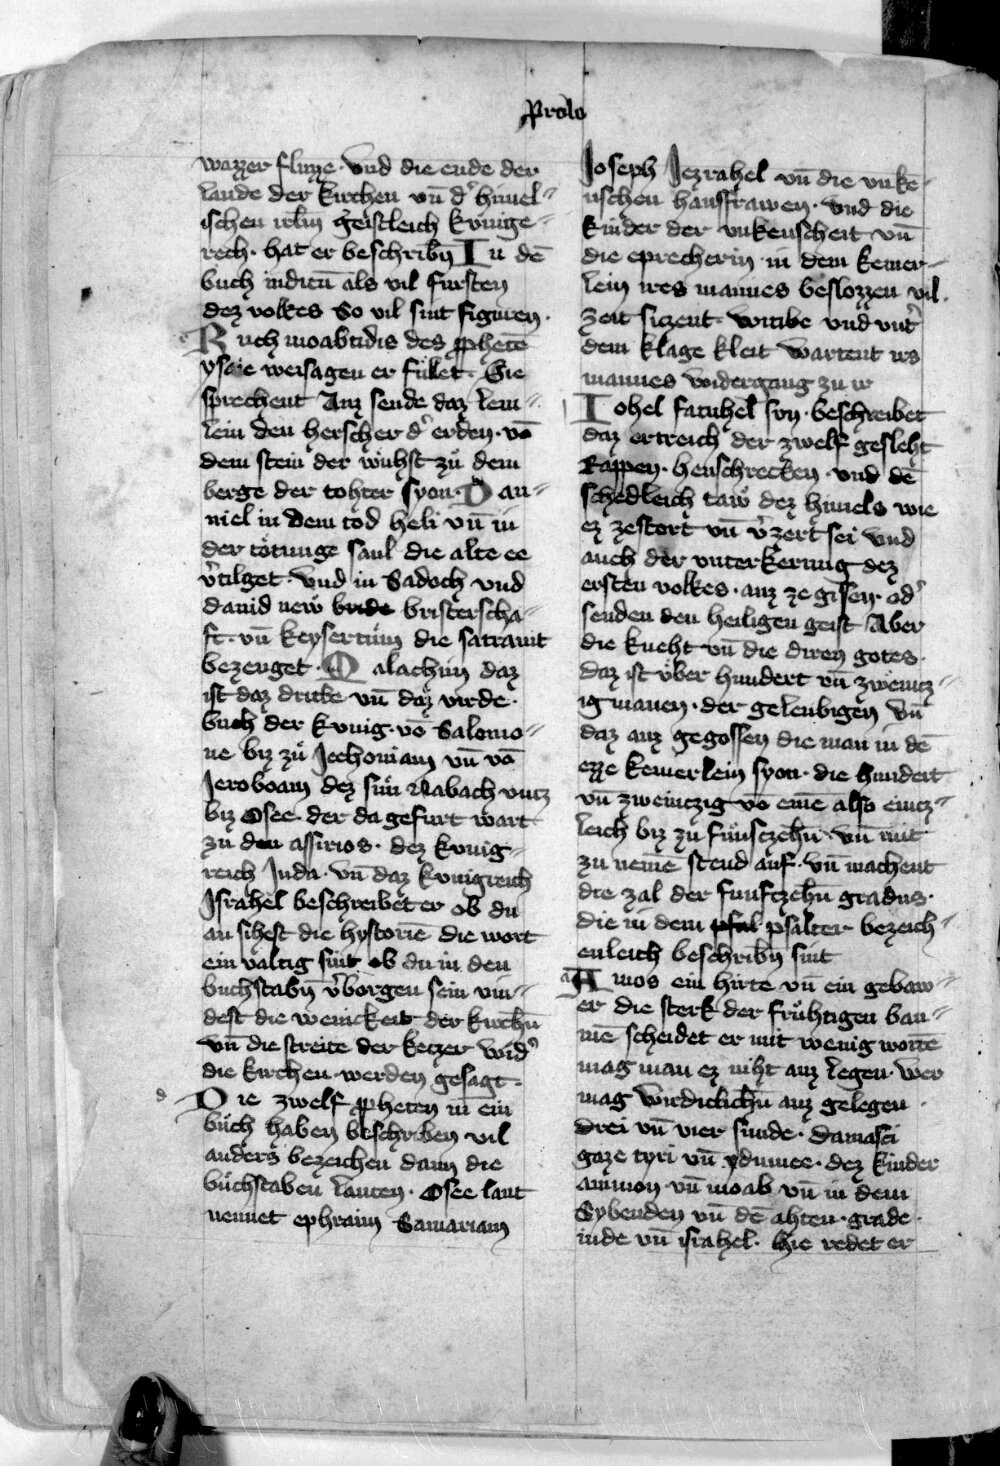 Prolo
wazzer fluzze · vnd die ende der
lande der kirchen vn̄ dˀ himel⸗
ischen irl̄m geistleich kvnige⸗
rech · hat er beschribn̄ In dē
buch iudicū als vil fursten
dez volkes So vil sint figuren ·
Ruch moabtidis des ꝓphetē
ysaie weisagen er fullet · Sie
sprechent Auz sende daz lem⸗
lein den herscher dˀ erden · vō
dem stein der wuͤhst zuͤ dem
berge der tohter syon · Dan⸗
niel in dem tod heli vn̄ in
der toͤtunge saul die alte ee
vˀtilget · vnd in Sadoch vnd
dauid neẅ bride bristerscha⸗
ft · vn̄ keysertuͤm die satramt
bezeuget · Malachim daz
ist daz dritte vn̄ daz virde ·
buch der kvnig · vō Salomo⸗
ne biz zuͤ Jechoniam vn̄ vō
Jeroboam dez suͤn Nabach vntz
biz Osee · der da gefurt wart
zu den assirios · dez kvnig⸗
reich Juda · vn̄ daz kvnigreich
Jsrahel beschreibet er ob du
an sihest die hystoriē die wort
ein valtig sint ob du in den
buchstabn̄ vˀborgen sein vin⸗
dest die wenickeit der kirchn̄
vn̄ die streite der ketzer widˀ
die kirchen · werden gesagt ·
Die zwelf ꝓpheten in ein
buͤch haben beschriben vil
anders bezeichen dann die
buͤchstaben lauten · Osee laut
nennet ephraim Samariam
Joseph Jezrahel vn̄ die vnkē⸗
uschen hausfrawen · vnd die
kinder der vnkeuscheit vn̄
die eprecherin in dem kemer⸗
lein ires mannes beslozzen vil ·
zeit siczent · witibe vnd vntˀ
dem klage kleit wartent irs
mannes widergang zu ir
Iohel fatuhel svn · beschreibet
daz ertreich der zwelf gesleht
Rappen · heuschrecken · vnd dē
schedleich taẅ dez himels wie
ez zestort vn̄ vˀzert sei vnd
auch der vnterkerung dez
ersten volkes · auz ze gisen · odˀ
senden den heiligen geist Aber
die kneht vn̄ die diren gotes ·
daz ist vͤber hundert vn̄ zweintz⸗
ig manen · der geleubigen vn̄
daz auz gegossen die man in dē
ezze kemerlein syon · die hundert
vn̄ zweintzig vō einē also eintz⸗
leich biz zu fuͤnfczehn̄ · vn̄ mit
zu nemē stend auf · vn̄ machent
die zal der funfczehn̄ gradus ·
die in dem psal psalter bezeich⸗
enleich beschribn̄ sint
Amos ein hirte vn̄ ein gebaw⸗
er die sterk der fruͤhtigen bau⸗
mē scheidet er mit wenig wortē
mag man ez niht auz legen · wer
mag wirdiclichn̄ auz gelegen ·
drei vn̄ vier sunde · damasci
gaze tyri vn̄ ydumee · dez kinder
ammon vn̄ moab vn̄ in dem
Sybenden vn̄ dē ahten · grade ·
iude vn̄ israhel · hie redet er